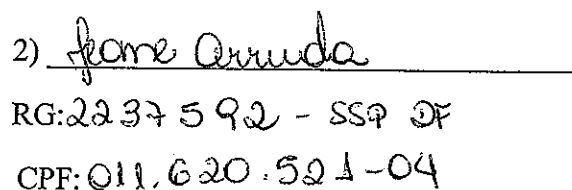 2) Jeane Arruda
RG:2237592 - SSP DF
CPF: 011.620.521-04